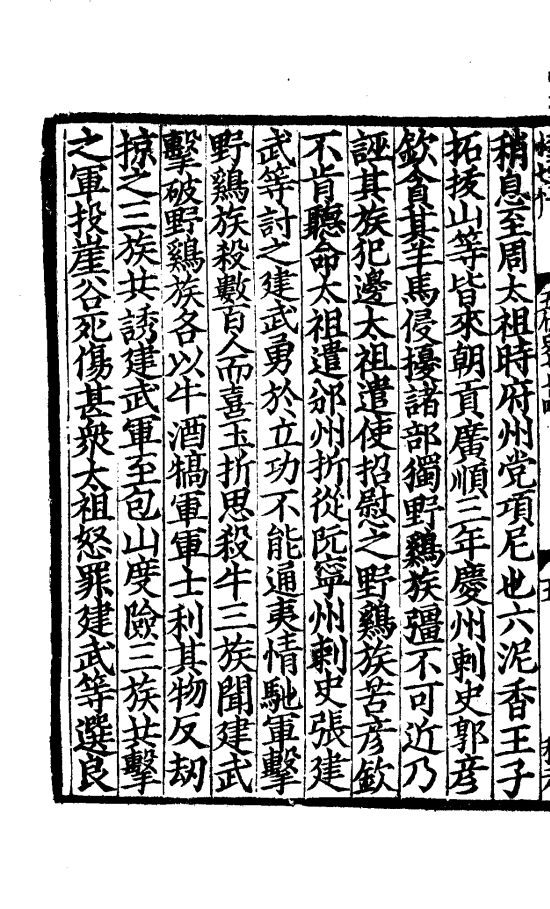 稍息至周太祖時府州党項尼也六泥香王子
拓拔山等皆來朝貢廣順三年慶州刺史郭彦
欽貪其羊馬侵擾諸部獨野鷄族彊不可近乃
誣其族犯邊太祖遣使招慰之野鷄族苦彦欽
不肯聽命太祖遣邠州折從阮寧州刺史張建
武等討之建武勇於立功不能通夷情馳軍擊
野鷄族殺數百人而喜玉折思殺牛三族聞建武
擊破野鷄族各以牛酒犒軍軍士利其物反刼
掠之三族共誘建武軍至包山度險三族共擊
之軍投崖谷死傷甚衆太祖怒罪建武等選良